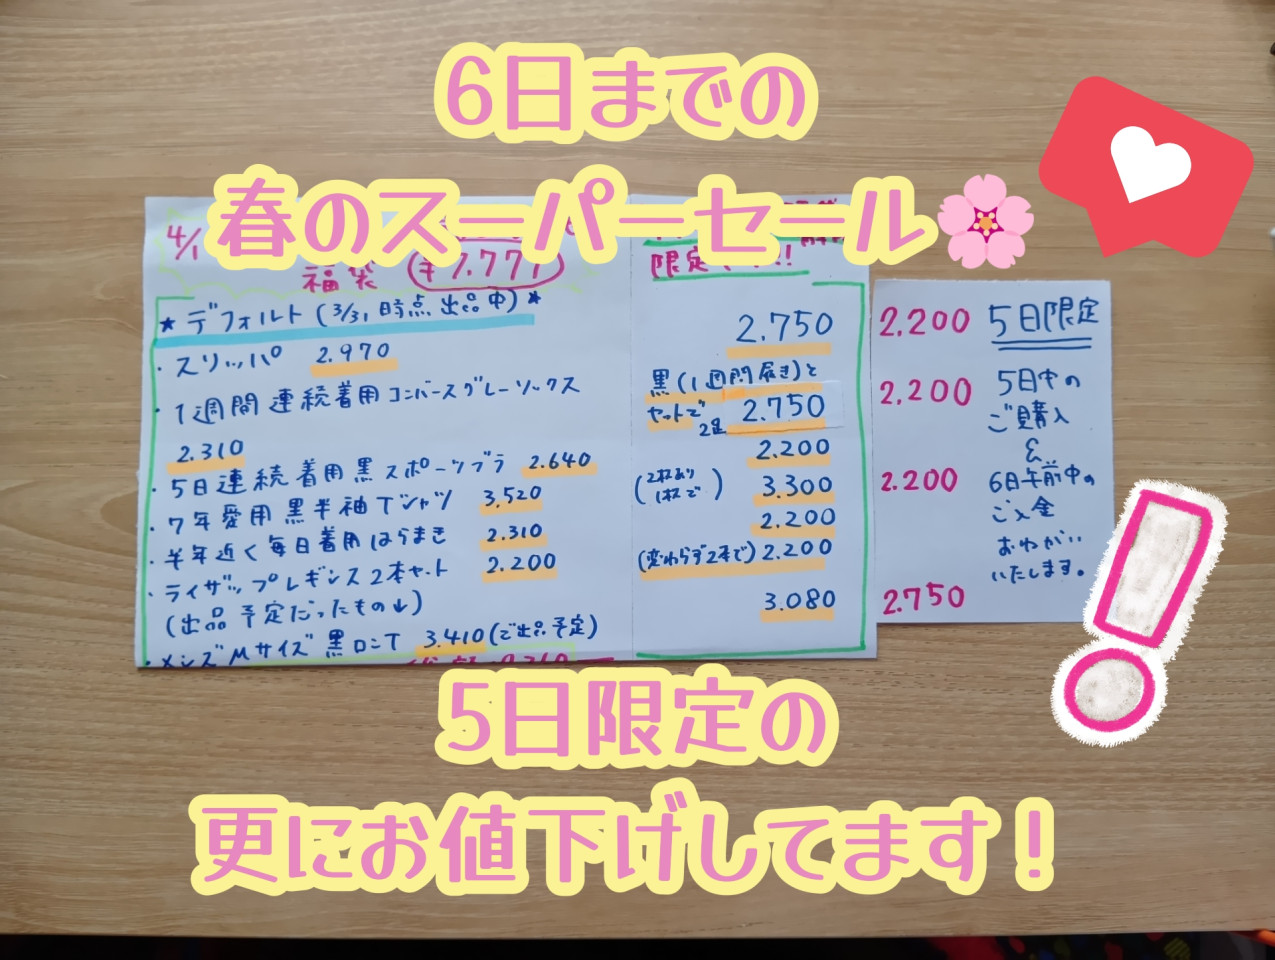 6日までの
春のスーパーセール🌸
4/1
福袋 ¥7.777
限定
★デフォルト(3/31時点出品中)★
・スリッパ 2.970
・1週間連続着用コンバースグレーソックス
2.310
・5日連続着用黒スポーツブラ 2.640
・7年愛用黒半袖Tシャツ 3.520
・半年近く毎日着用はらまき 2.310
・ライザップレギンス2本セット 2.200
(出品予定だったもの↓)
・メンズMサイズ黒ロンT 3.410(で出品予定)
2.750
黒(1週間履き)と
セットで
2足 2.750
2.200
(2枚あり
1枚で) 3.300
2.200
(変わらず2本で) 2.200
3.080
2.200 5日限定
2.200 5日中の
ご購入
&
2.200 6日午前中の
ご入金
おねがい
いたします。
2.750
5日限定の
更にお値下げしてます!